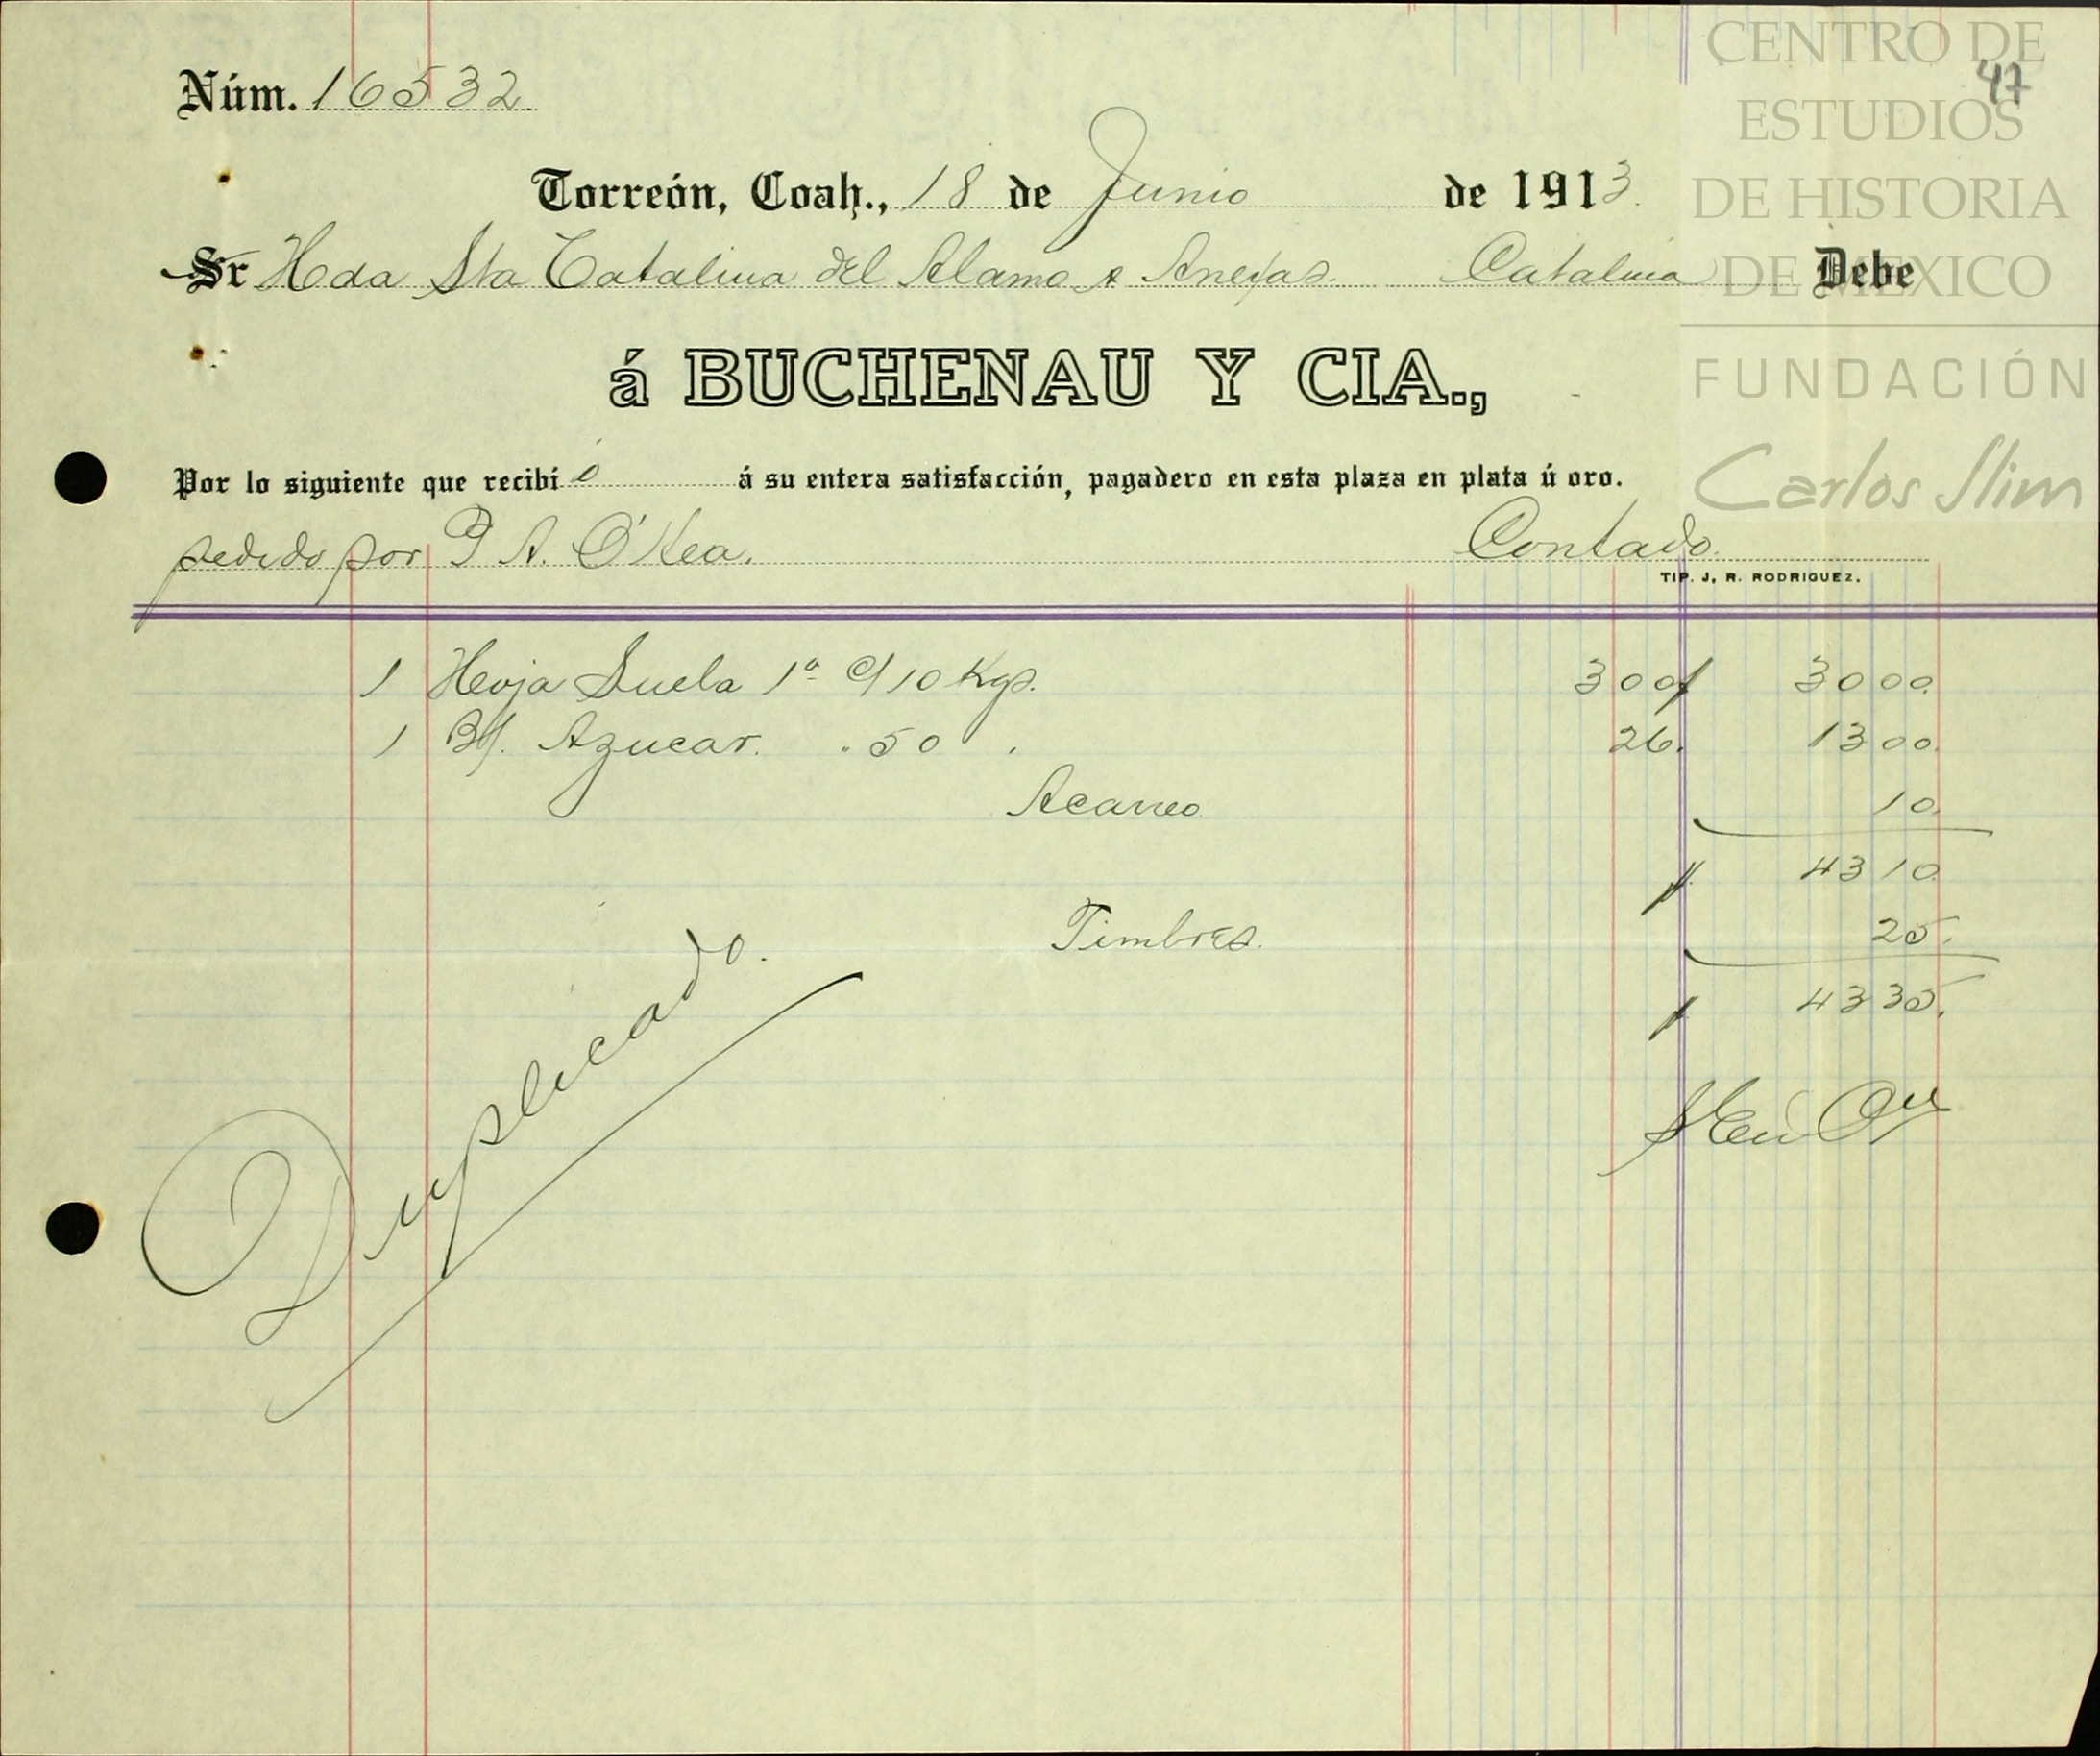 Núm. 16532
47
Torreón, Coah., 18 de Junio de 1913.
Sr Hda Sta Catalina del Alamo & Anexas. Catalina Debe
á BUCHENAU Y CIA.,
Por lo siguiente que recibí ó á su entera satisfacción, pagadero en esta plaza en plata ú oro.
pedido por P A. O'Hea. Contado.
TIP. J. R. RODRIGUEZ.
1 Hoja Suela 1ª c/ 10 Kgs. 300 3000
1 B/. Azucar. " 50 " 26. 1300
Acarreo 10
$ 4310
Timbres. 25.
$ 4335.
Duplicado.
CENTRO DE
ESTUDIOS
DE HISTORIA
DE MÉXICO
FUNDACIÓN
Carlos Slim